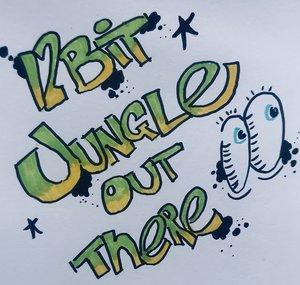 12Bit
JUNGLE
OUT
THERE